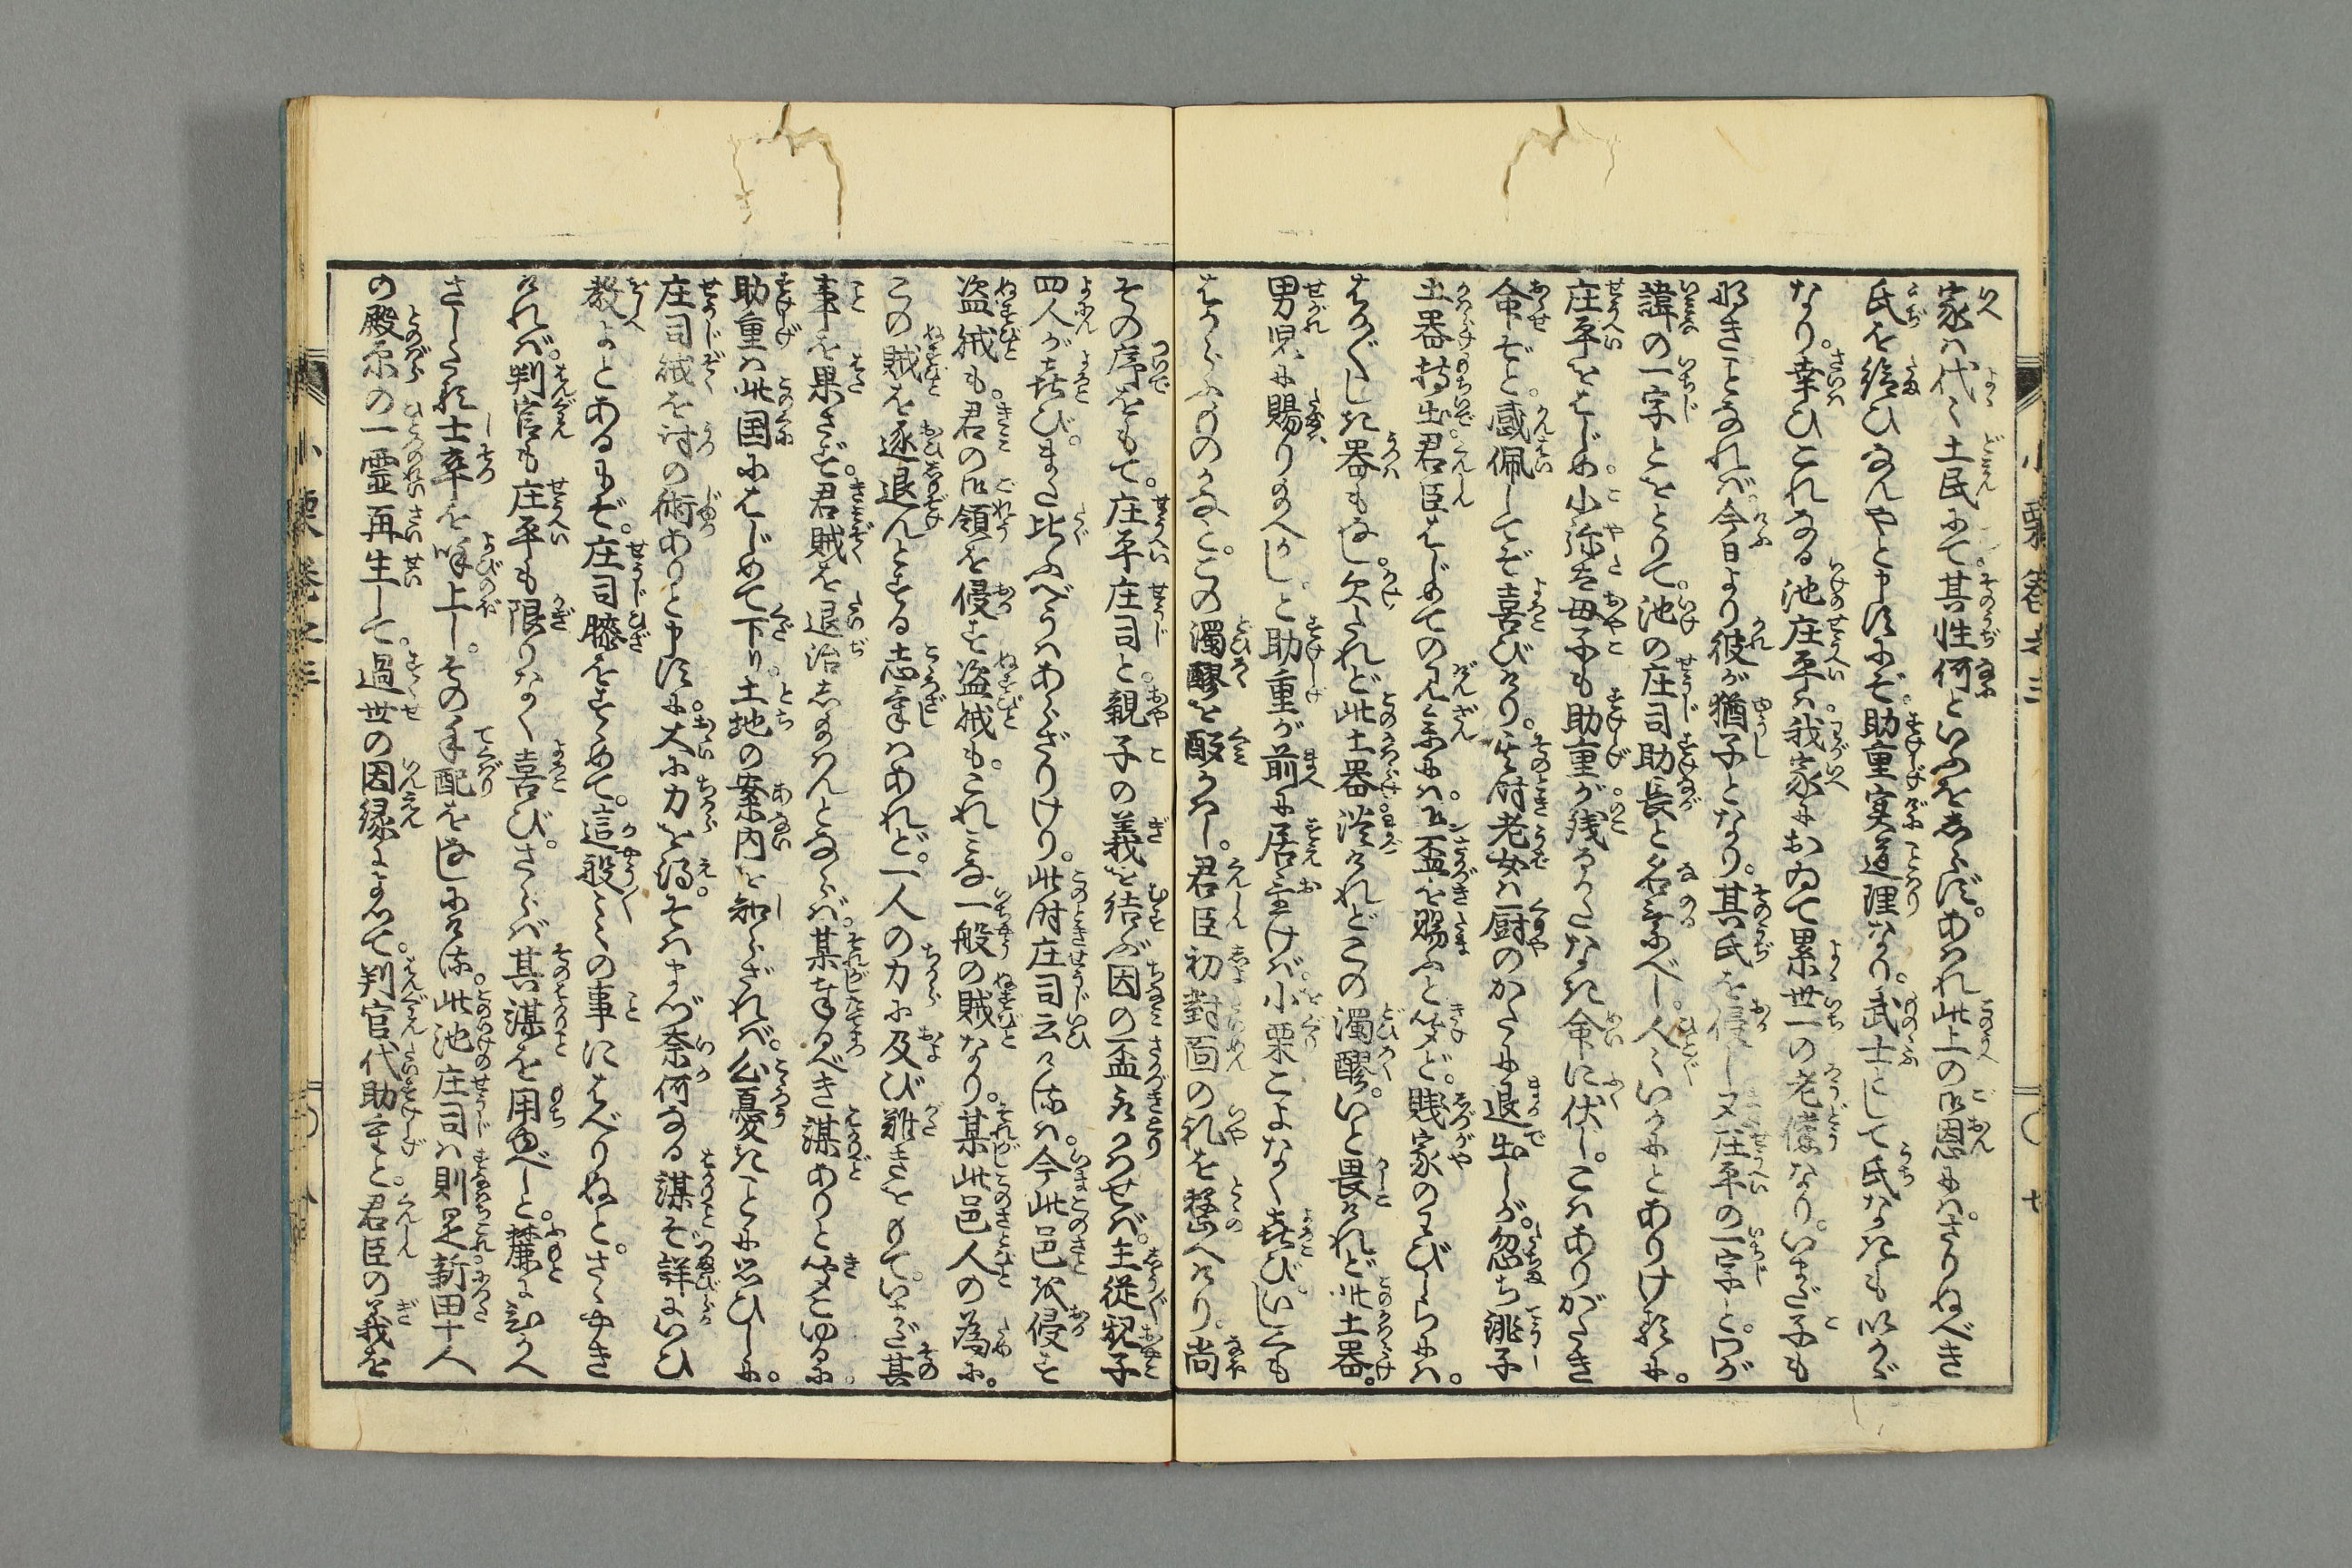 家ハ代〻土民にて。其性何といふをしらず。あはれ此上の御恩にハ。さりぬべき
氏を給ひなんやと申すにぞ。助重実道理なり。武士として氏なきも いかゞ
なり。幸ひこれなる池庄平ハ。我家において累世一の老僕なり。いまだ子も
なきことなれバ。今日より彼が猶子となり。其氏を侵し又庄平の一字と。わが
諱の一字とをとりて。池の庄司助長と名のるべし。人〻いかにとありけるに。
庄平をはじめ。小弥太母子も助重が。残るかたなき命に伏し。こハありがたき
命ぞと。感佩してぞ喜びけり。其時老女ハ厨のかたに退出しが。忽ち銚子
土器持出。君臣はじめての見参にハ。御盃を賜ふと聞ど。賤家のわびしらにハ。
はか〴〵しき器もなし。欠たれど此土器。淡けれどこの濁醪。いと畏けれど此土器。
男児に賜りたまへかし。と助重が前に居置けバ。小栗こよなく喜び。いしくも
はからふものかなと。この濁醪を酌かはし。君臣初對面の礼を整へけり。尚
その序をもて。庄平庄司と。親子の義を結ぶ因の盃取かはせバ。主従親子
四人が喜び。また比ふべうハあらざりけり。此時庄司云けるハ。今此邑を侵す
盗賊も。君の御領を侵す盗賊も。これみな一般の賊なり。某此邑人の為に。
この賊を逐退んとする志事ハあれど。一人の力に及び難きをもて。いまだ其
事を果さず。君賊を退治したまはんとならバ。某奉るべき謀ありと聞こゆるに。
助重ハ此国にはじめて下り。土地の案内を知らざれバ。心憂きことに思ひしに。
庄司賊を討の術ありと申すに。大に力を得。そハまづ奈何なる謀ぞ。詳にいひ
教よとあるにぞ。庄司膝をすゝめて。這般〻〻の事にはべりぬと。さゝやき
けれバ。判官も庄平も限りなく喜び。さらバ其謀を用ゆべしと。麓に訟へ
さしたる士卒を呼上し。その手配をなしにける。此池庄司ハ則是新田十人
の殿原の一霊再生して。過世の因縁によりて。判官代助重と。君臣の義を